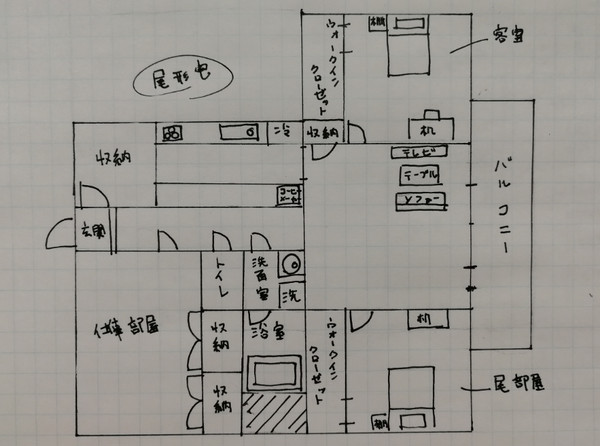 尾形宅
ウォークイン
クローゼット
棚
客室
収納
冷
収納
机
テレビ
テーブル
ソファー
コーヒー
メーカー
バルコニー
玄関
トイレ
洗面室
洗
仕事部屋
収納
収納
浴室
ウォークイン
クローゼット
机
棚
尾部屋